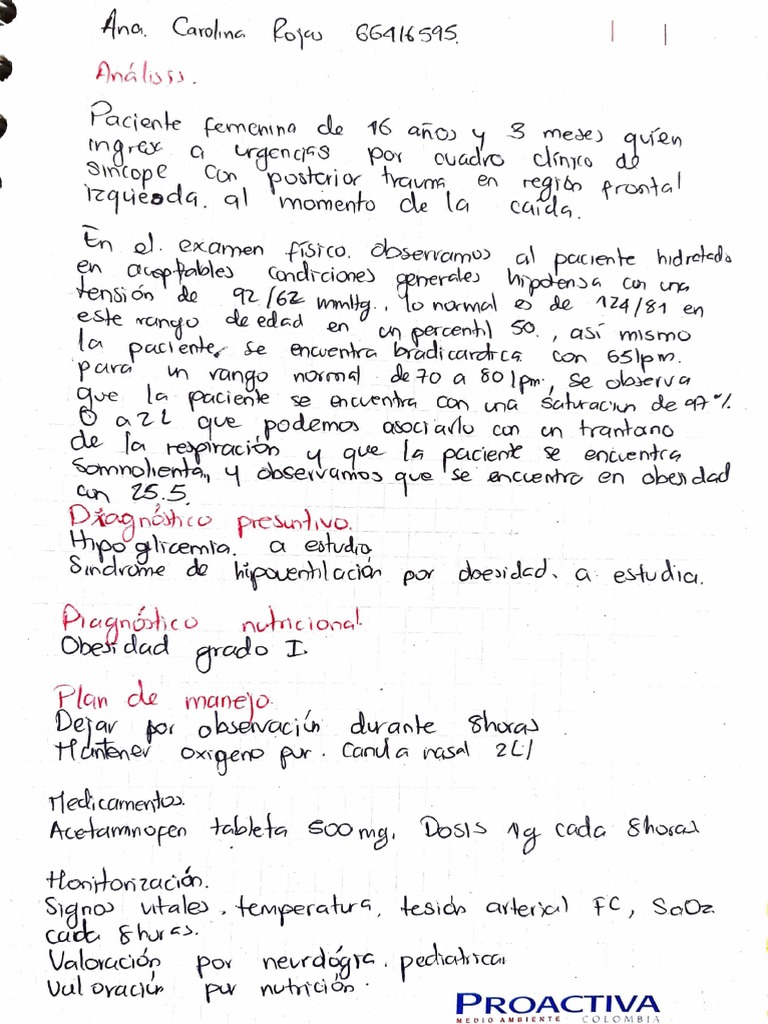 Ana. Carolina Rojas 66416595.
Análisis.
Paciente femenino de 16 años y 3 meses quien
ingresa a urgencias por cuadro clínico de
sincope con posterior trauma en región frontal
izquieoda. al momento de la caida.
En el. examen físico. Observamos al paciente hidratado
en aceptables condiciones generales hipotensa con una
tensión de 92/62 mmHg., lo normal es de 124/81 en
este rango de edad en un percentil 50., así mismo
la paciente, se encuentra bradicardica con 65lpm.
para un rango normal de 70 a 80lpm, se observa
que la paciente se encuentra con una saturacion de 97%
a 2L que podemos asociarlo con un trantano
de la respiración y que la paciente se encuentra
Somnolienta, y observamos que se encuentra en obesidad
con 25.5.
Diagnóstico presuntivo.
Hipoglicemia. a estudio
Sindrome de hipoventilación por obesidad. a estudia.
Diagnóstico nutricional
Obesidad grado I.
Plan de manejo.
Dejar por observación durante 8horas
Mantener oxigeno por. Canula nasal 2L/
Medicamentos.
Acetamnofen tableta 500mg. Dosis 1g cada 8horas
Monitorización.
Signos vitales, temperatura, tesión arterial FC, SaO2
cada 8horas.
Valoración por neurología. pediatrica
Valoración por nutrición.
PROACTIVA
MEDIO AMBIENTE COLOMBIA